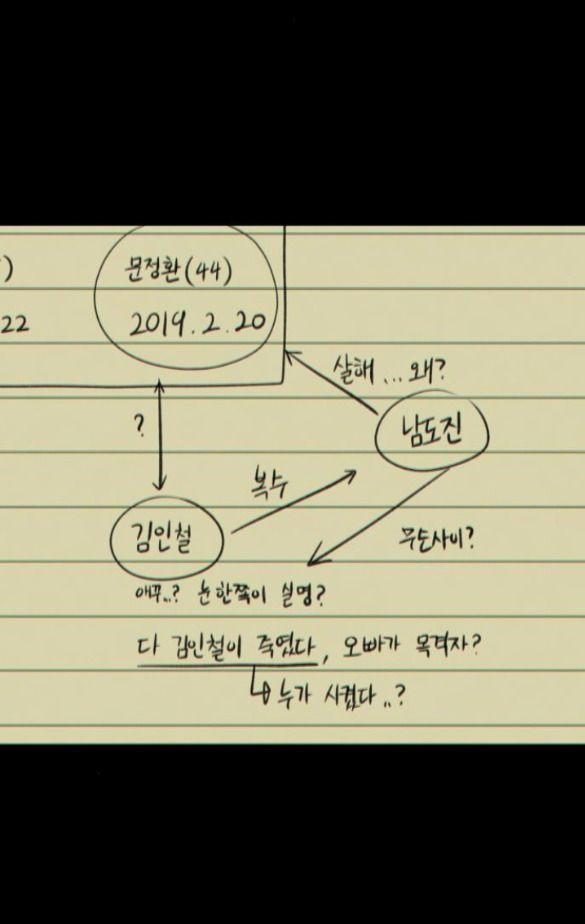 )
문정환(44)
22
2019.2.20
살해 ... 왜?
?
남도진
복수
김인철
무슨사이?
애꾸..? 눈 한쪽이 실명?
다 김인철이 죽였다, 오빠가 목격자?
누가 시켰다..?